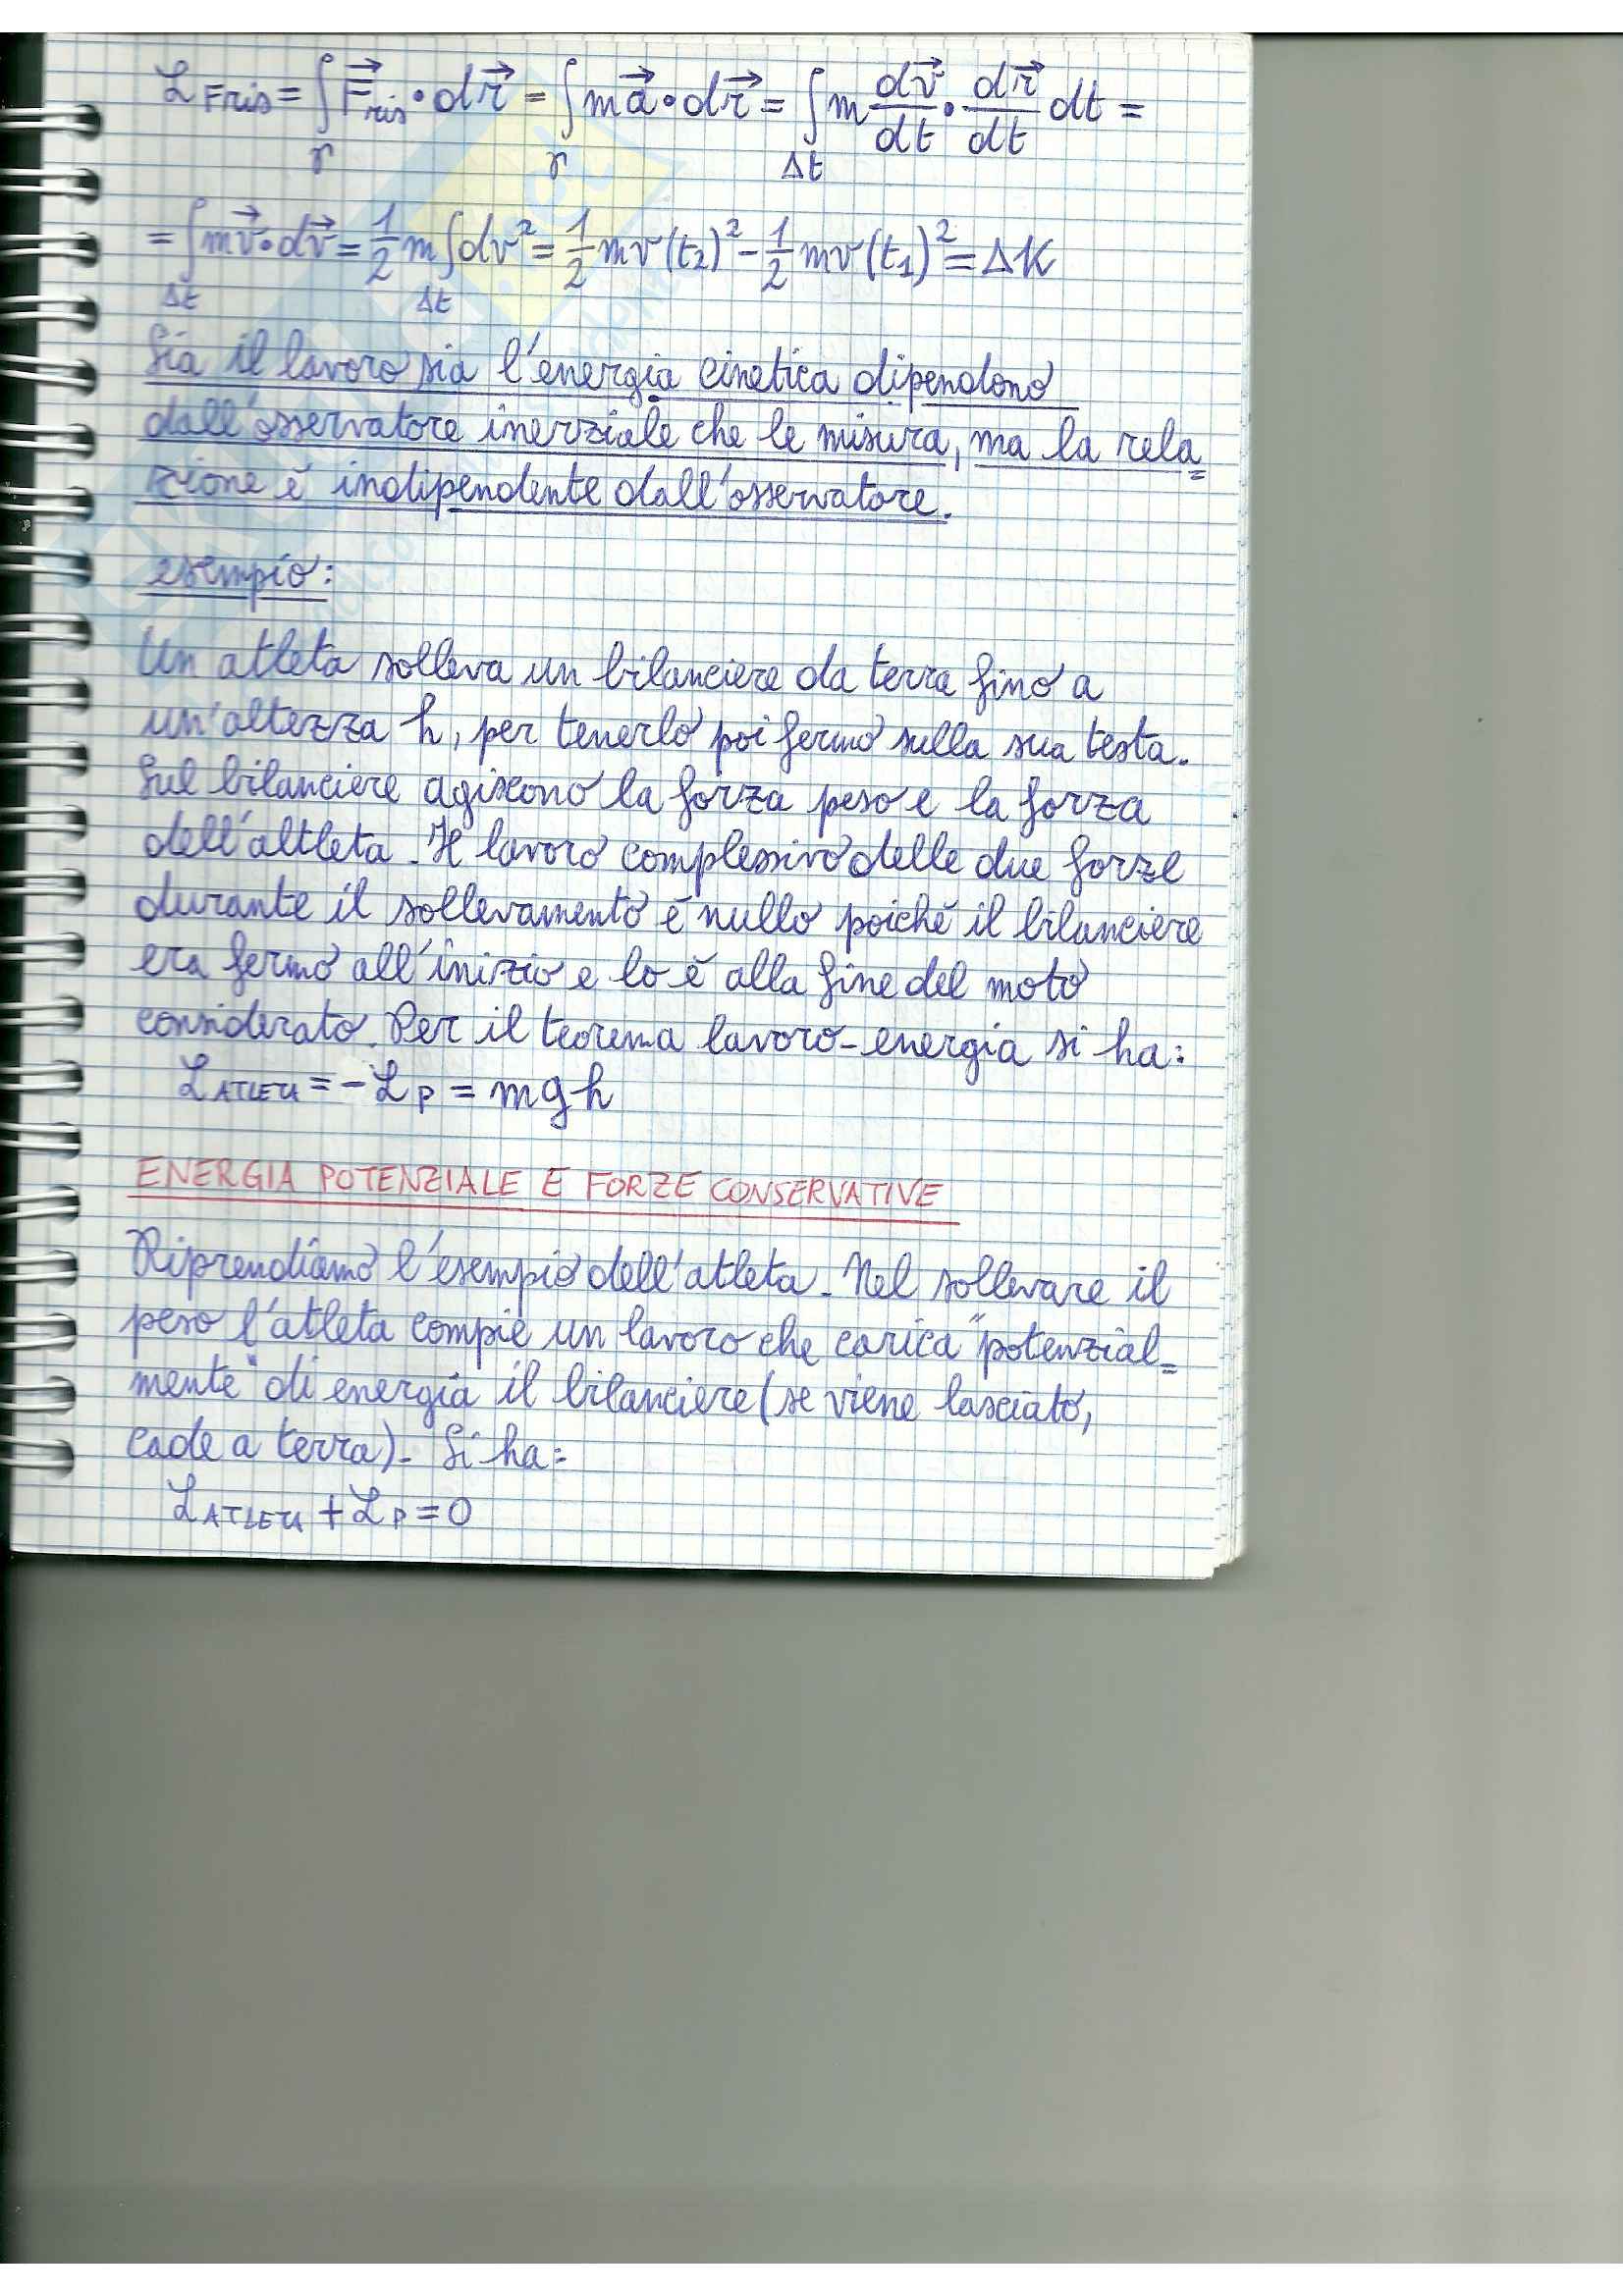 L Fris = ∫γ F⃗ris · dr⃗ = ∫γ ma⃗ · dr⃗ = ∫Δt m dv⃗/dt · dr⃗/dt dt =
= ∫Δt mv⃗ · dv⃗ = 1/2 m ∫Δt dv² = 1/2 mv(t₂)² - 1/2 mv(t₁)² = ΔK
Sia il lavoro sia l'energia cinetica dipendono
dall'osservatore inerziale che le misura, ma la rela=
zione è indipendente dall'osservatore.
esempio:
Un atleta solleva un bilanciere da terra fino a
un'altezza h, per tenerlo poi fermo sulla sua testa.
Sul bilanciere agiscono la forza peso e la forza
dell'altleta. Il lavoro complessivo delle due forze
durante il sollevamento è nullo poiché il bilanciere
era fermo all'inizio e lo è alla fine del moto
considerato. Per il teorema lavoro-energia si ha:
L ATLETA = - L P = mgh
ENERGIA POTENZIALE E FORZE CONSERVATIVE
Riprendiamo l'esempio dell'atleta. Nel sollevare il
peso l'atleta compie un lavoro che carica "potenzial=
mente" di energia il bilanciere (se viene lasciato,
cade a terra). Si ha:
L ATLETA + L P = 0